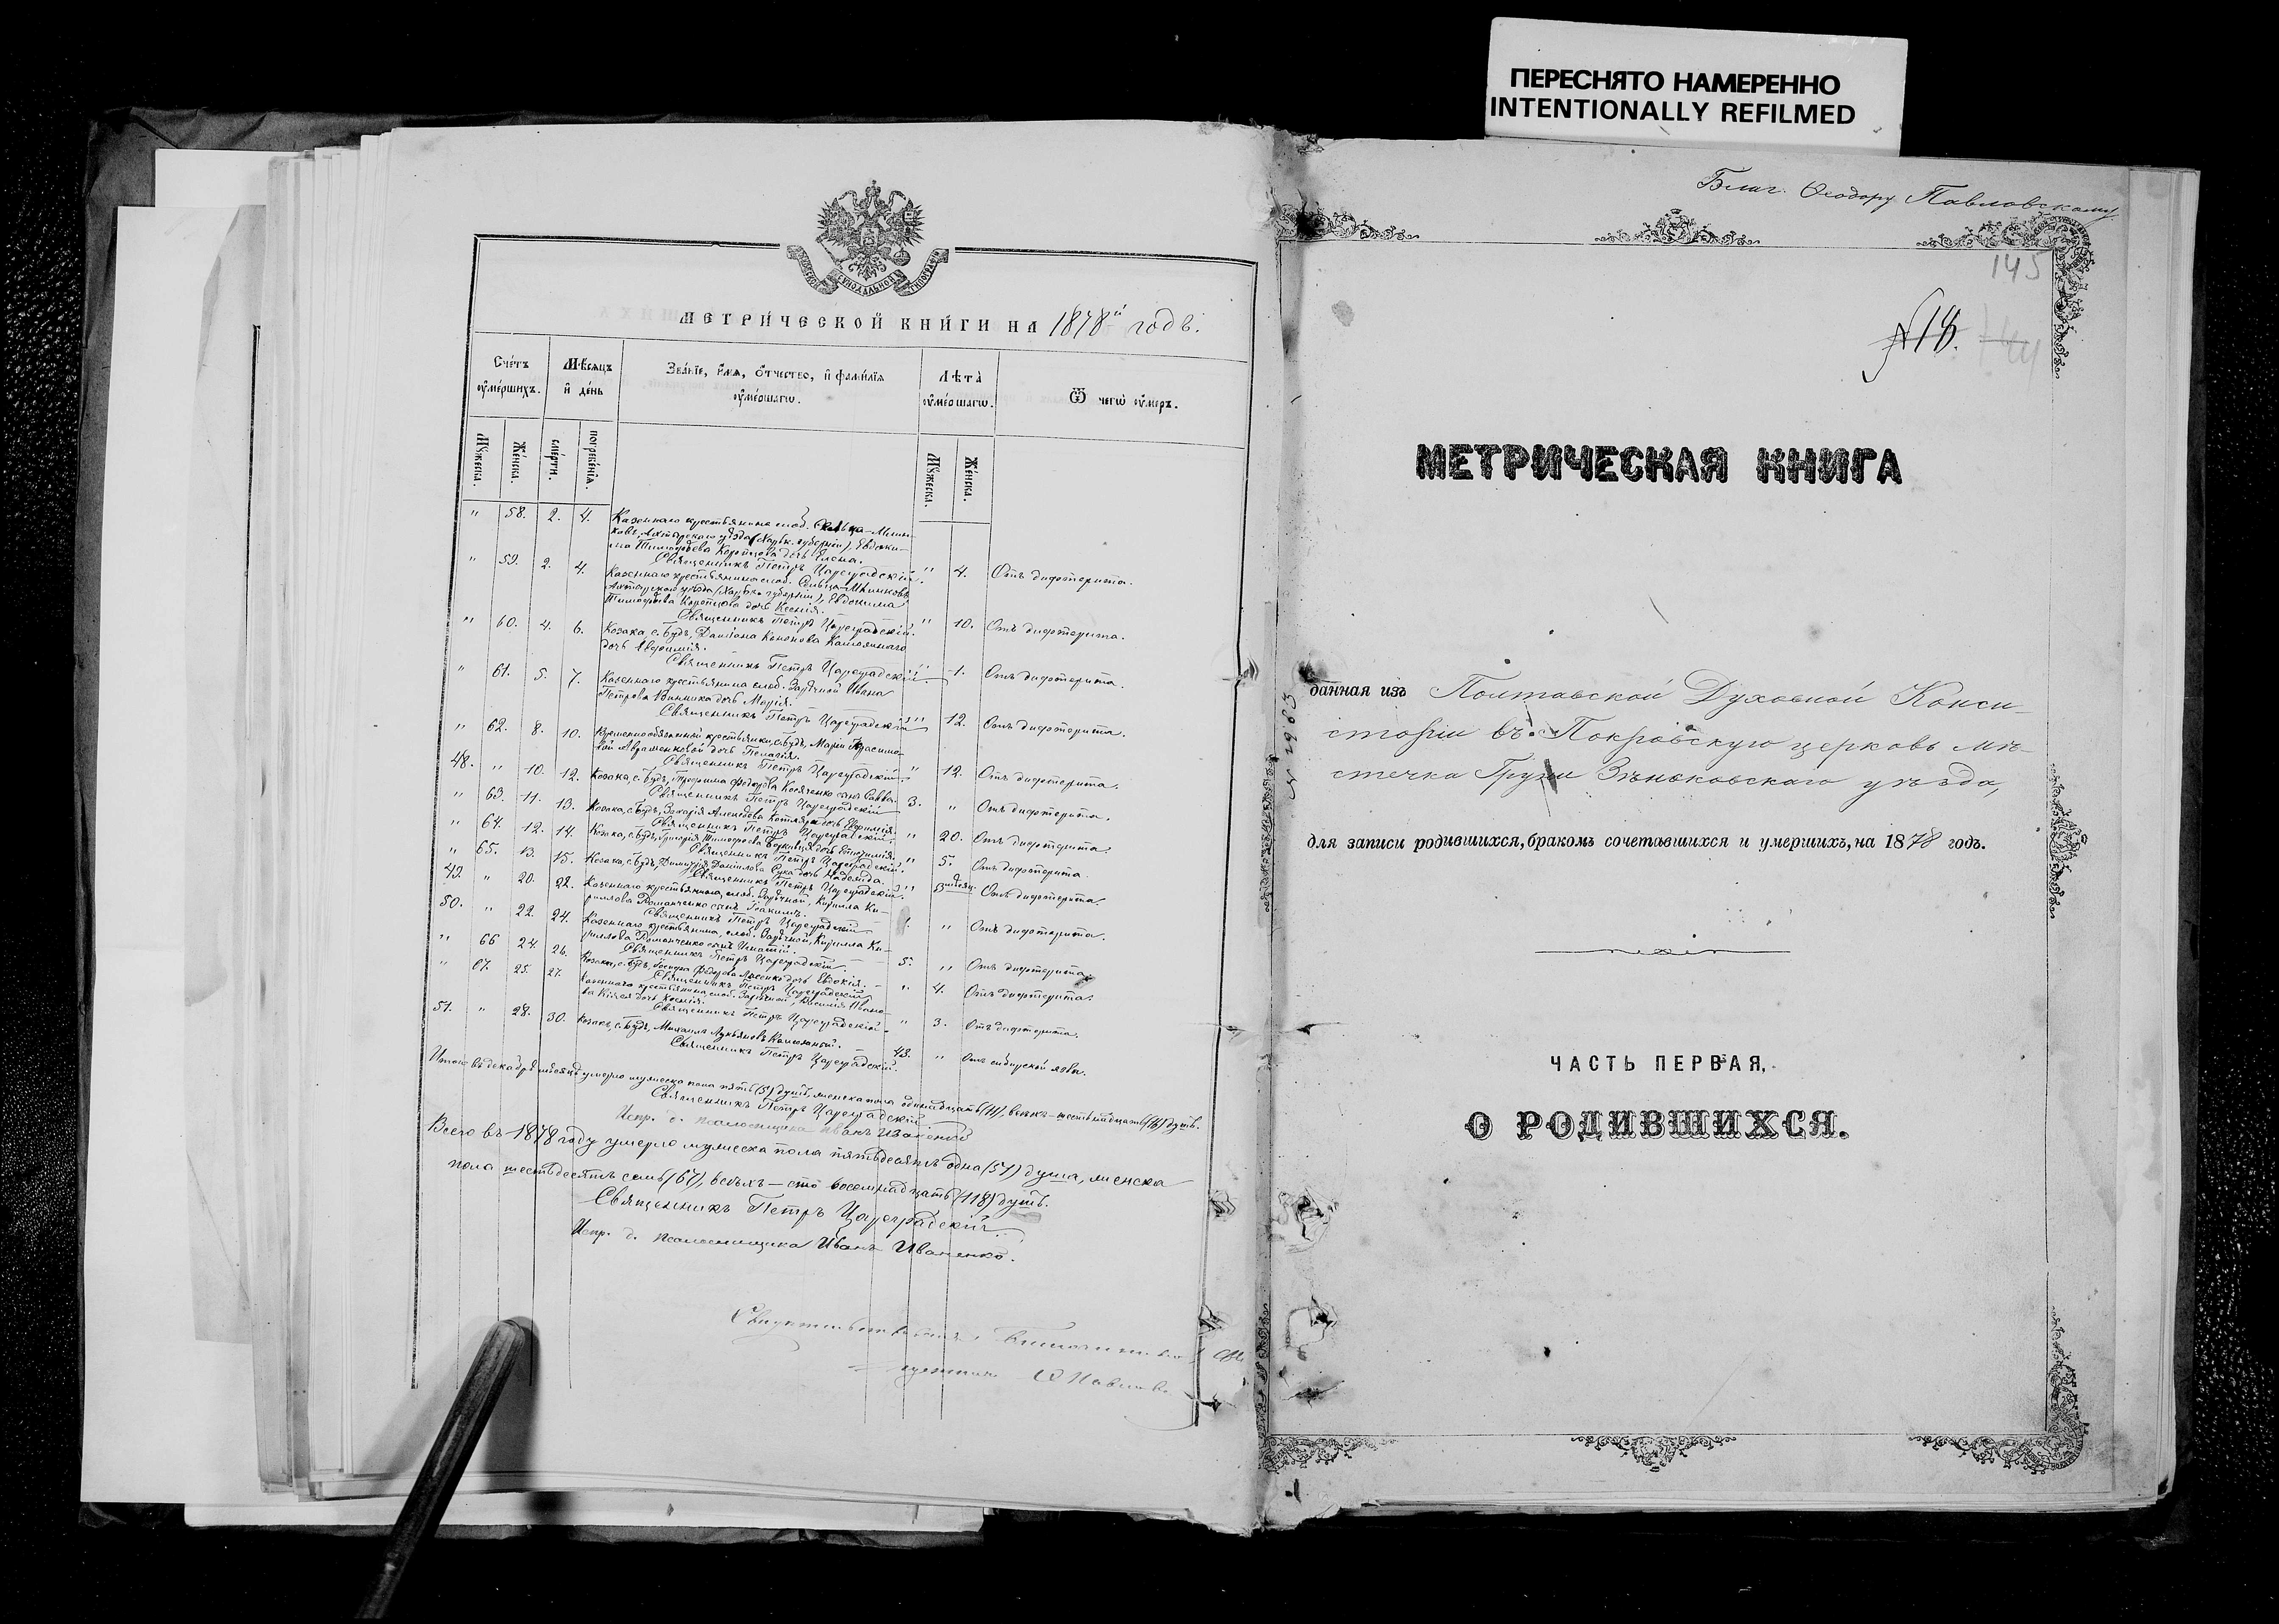 ПЕРЕСНЯТО НАМЕРЕННО
INTENTIONALLY REFILMED
МЕТРИ́ЧЕСКОЙ КНИ́ГИ НА 1878й годъ.
Сче́тъ ᲂу҆ме́ршихъ.
Мѣ́сѧцъ и҆ де́нь
Зва́нїе, и҆́мѧ, ѻ҆́тчество, и҆ фамѝлїѧ ᲂу҆ме́ршагѡ.
Лѣ́та ᲂу҆ме́ршагѡ.
Ѿ чегѡ̀ ᲂу҆́меръ.
Мꙋ́жеска.
Же́нска.
сме́рти.
погребе́нїѧ.
Мꙋ́жеска.
Же́нска.
" 58. 2. 4. Казеннаго крестьянина слоб.
ховъ, Ахтырскаго уѣзда (Харьк. губерніи), Евдоки-
ма Тимоѳеева Коропцова дочь Елена.
Священникъ Петръ Цареградскій. " 4. Отъ дифтерита.
" 59. 2. 4. Казеннаго крестьянина слоб.
Ахтырскаго уѣзда (Харьк. губерніи), Евдокима
Тимоѳеева Коропцова дочь Ксенія.
Священникъ Петръ Цареградскій. " 10. Отъ дифтерита.
" 60. 4. 6. Козака, с. Будъ, Даміана Кононова
дочь Евфимія.
Священникъ Петръ Цареградскій " 1. Отъ дифтерита.
" 61. 5. 7. Казеннаго крестьянина слоб. Зарѣчной Ивана
Петрова Винника дочь Марія.
Священникъ Петръ Цареградскій " 12. Отъ дифтерита.
" 62. 8. 10. Временнообязанной крестьянки, с. Будъ, Маріи Герасимо-
вой Авраменковой дочь Пелагія.
Священникъ Петръ Цареградскій " 12. Отъ дифтерита.
48. " 10. 12. Козака, с. Будъ, Трофима Ѳедорова Косяченко сынъ Савва.
Священникъ Петръ Цареградскій 3. " Отъ дифтерита.
" 63. 11. 13. Козака, с. Будъ, Захарія Алексѣева Котляра дочь Евфимія.
Священникъ Петръ Цареградскій. " 20. Отъ дифтерита.
" 64. 12. 14. Козака, с. Будъ, Григорія Тимоѳеева дочь
Священникъ Петръ Цареградскій. " 5. Отъ дифтерита.
" 65. 13. 15. Козака, с. Будъ, Димитрія Даніилова дочь Надежда.
Священникъ Петръ Цареградскій. " Отъ дифтерита.
49. " 20. 22. Казеннаго крестьянина, слоб. Зарѣчной, Кирилла Ки-
риллова Романченко сынъ Іоакимъ.
Священникъ Петръ Цареградскій 1. " Отъ дифтерита.
50. " 22. 24. Казеннаго крестьянина, слоб. Зарѣчной, Кирилла Ки-
риллова Романченко сынъ Игнатій.
Священникъ Петръ Цареградскій. 5. " Отъ дифтерита.
" 66 24. 26. Козака, с. Будъ, Ѳедорова дочь Евдокія.
Священникъ Петръ Цареградскій " 4. Отъ дифтерита.
" 67. 25. 27. Казеннаго крестьянина, слоб. Зарѣчной, Василія Ивано-
ва дочь Ксенія.
Священникъ Петръ Цареградскій. " 3. Отъ дифтерита.
51. " 28. 30. Козакъ, с. Будъ, Михаилъ Лукьяновъ
Священникъ Петръ Цареградскій. 43. " Отъ сибирской язвы.
Итого въ декабрѣ мѣсяцѣ умерло мужеска пола пять (5) душъ, женска пола одинадцать (11), всѣхъ — шестьнадцать (16) душъ.
Священникъ Петръ Цареградскій
Испр. д. псаломщика Иванъ Иваненко
Всего въ 1878 году умерло мужеска пола пятьдесятъ одна (51) душа, женска
пола шестьдесятъ семь (67), всѣхъ — сто восемнадцать (118) душъ.
Священникъ Петръ Цареградскій.
Испр. д. псаломщика Иванъ Иваненко.
Благ. Ѳеодору Павловскому
145
№ 18.
144
МЕТРИЧЕСКАЯ КНИГА
данная изъ Полтавской Духовной Конси-
сторіи въ Покровскую церковь мѣ-
стечка Груни Зѣньковскаго уѣзда,
для записи родившихся, бракомъ сочетавшихся и умершихъ, на 1878 годъ.
ЧАСТЬ ПЕРВАЯ,
О РОДИВШИХСЯ.